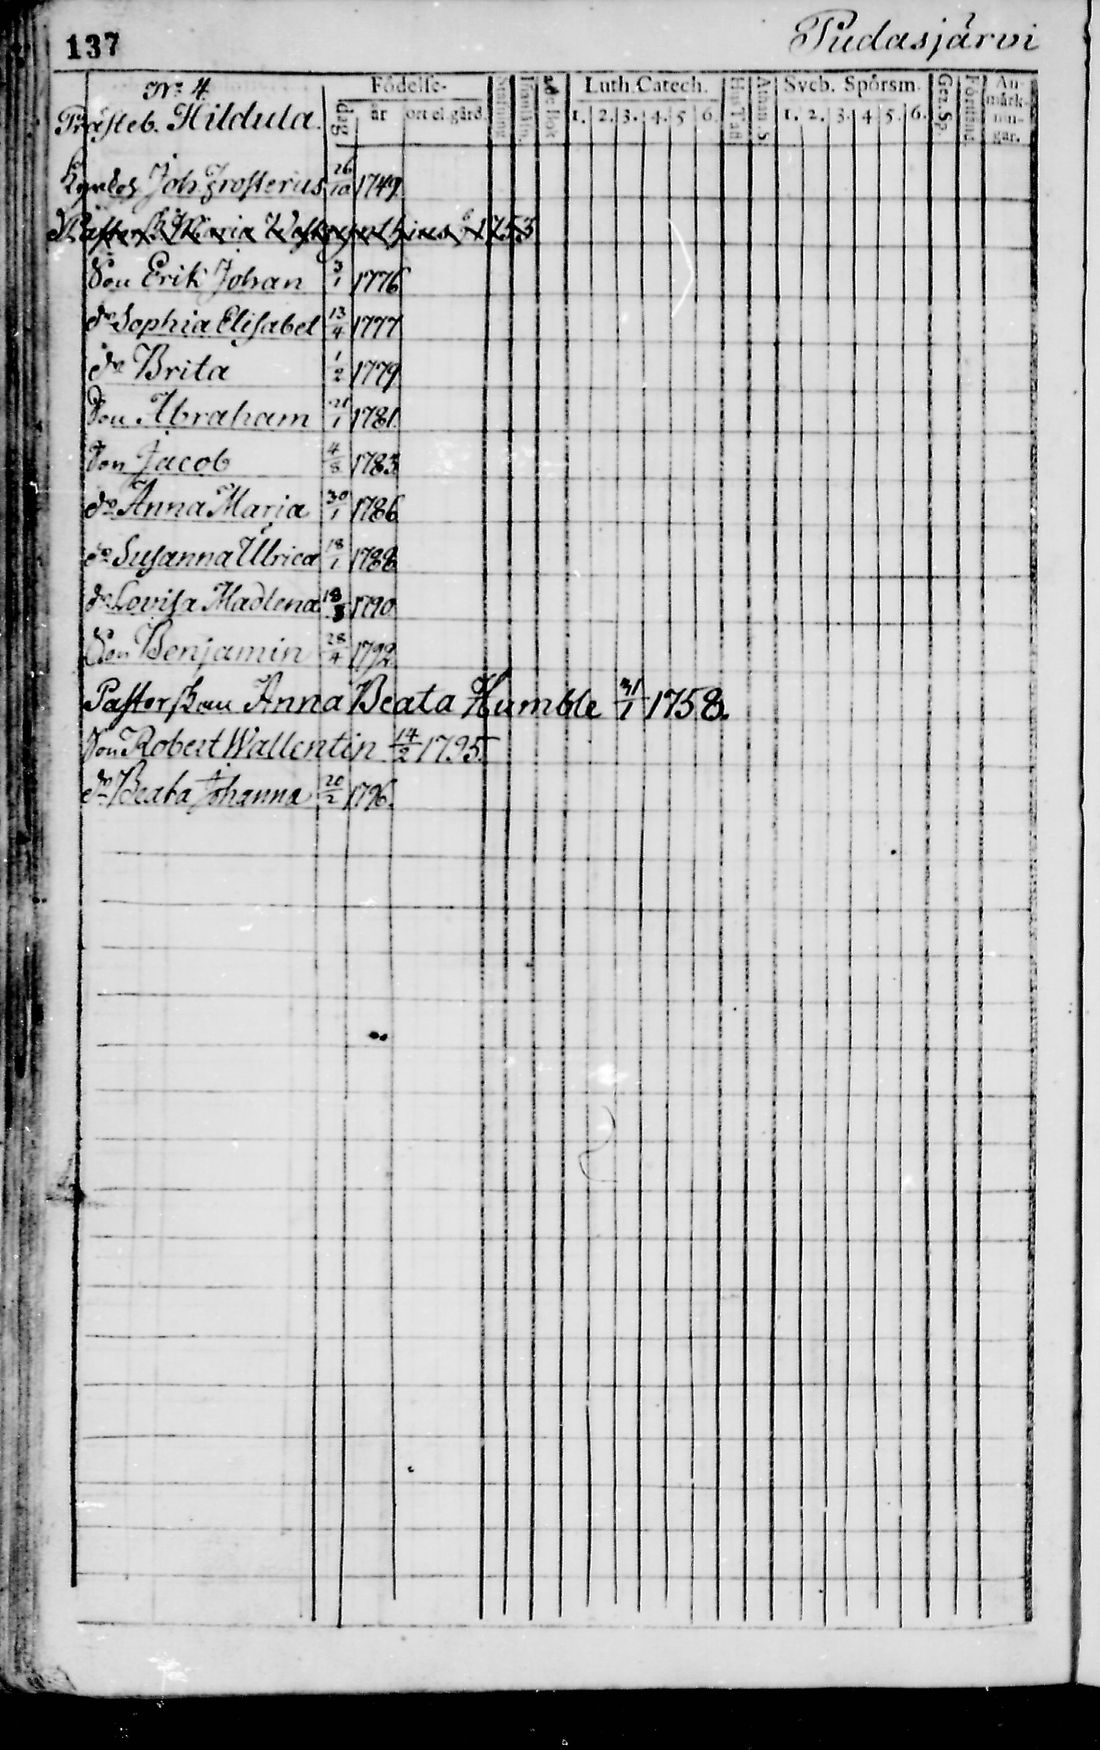 137
Pudasjärvi
No. 4
Prästeb. Hildula.
Födelse-
dag
år
ort el. gård.
Luth. Catech.
1. 2. 3. 4. 5 6.
Hus Tafl
Athan. S
Sveb. Spörsm.
1. 2. 3. 4 5. 6.
Ger. Sp.
Förstånd
An-
märk-
nin-
gar.
Kyrkoh Joh. Frosterius 26/10 1749.
Maria 1753
Son Erik Johan 3/1 1776
do Sophia Elisabet 13/4 1777
do Brita 1/2 1779
Son Abraham 21/1 1781.
Son Jacob 4/8 1783
do Anna Maria 30/1 1786
do Susanna Ulrica 18/1 1788
do Lovisa Madlena 18/8 1790
Son Benjamin 28/4 1792
Pastorskan Anna Beata Humble 31/1 1758.
Son Robert Wallentin 14/2 1795.
do Beata Johanna 20/2 1796.